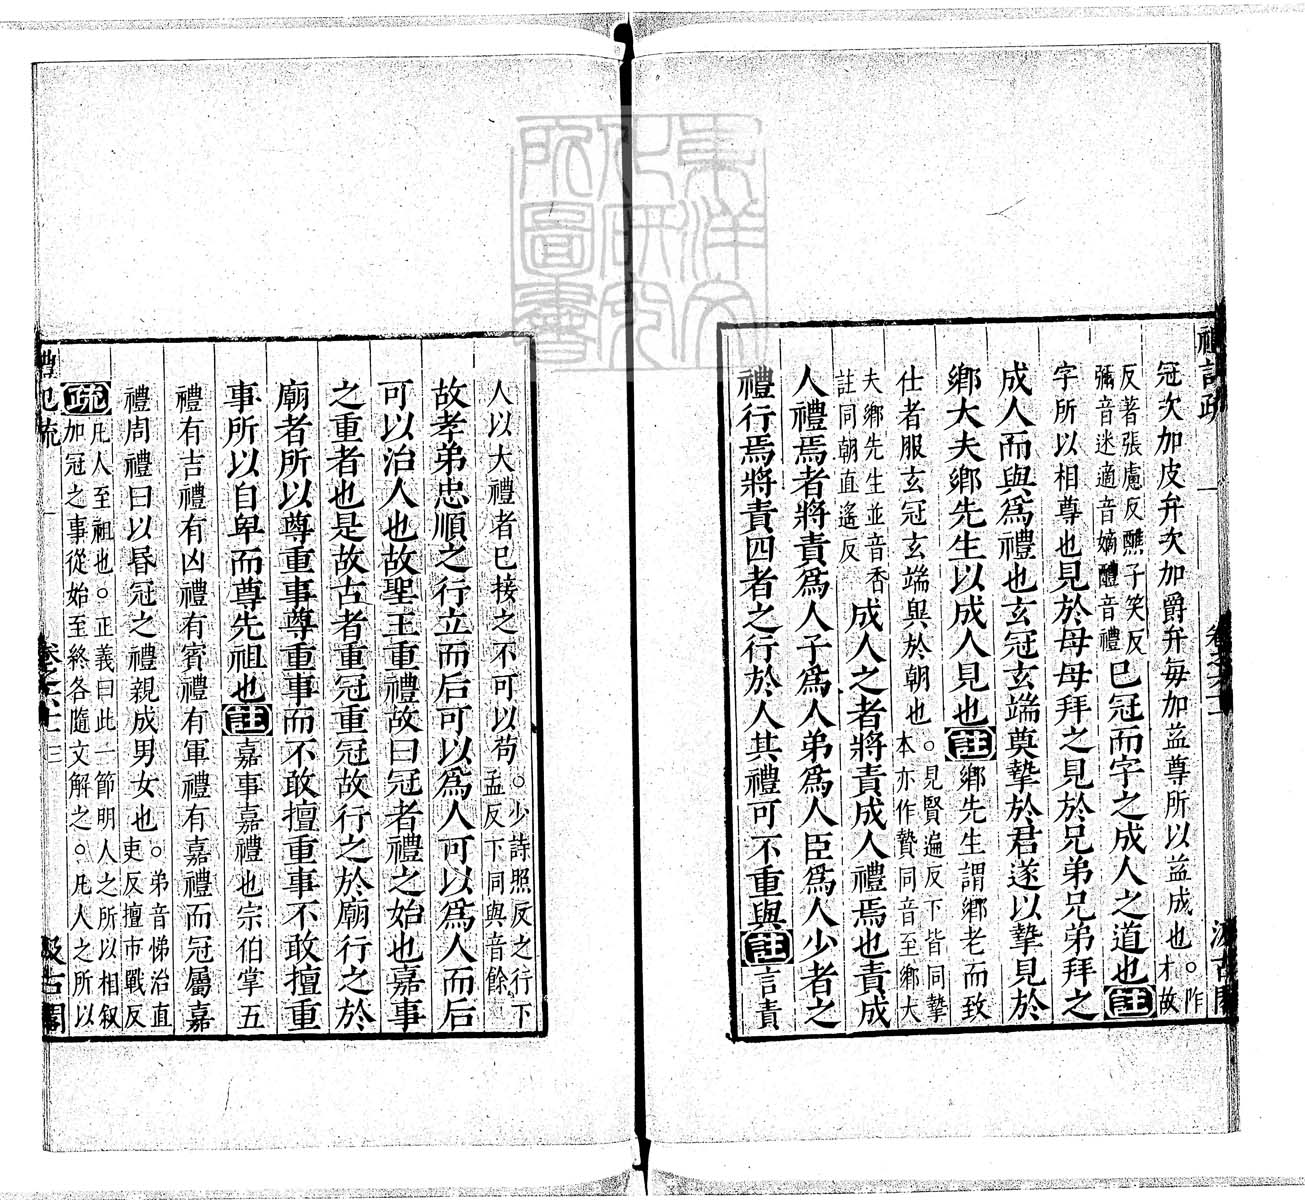 冠次加皮弁次加爵弁每加益尊所以益成也。阼才故
反著張慮反醮子笑反彌音迷適音嫡醴音禮已冠而字之成人之道也註
字所以相尊也見於母母拜之見於兄弟兄弟拜之
成人而與爲禮也玄冠玄端奠摯於君遂以摯見於
鄉大夫鄉先生以成人見也註鄉先生謂鄉老而致
仕者服玄冠玄端異於朝也。見賢遍反下皆同摯本亦作贄同音至鄉大
夫鄉先生並音香註同朝直遙反成人之者將責成人禮焉也責成
人禮焉者將責爲人子爲人弟爲人臣爲人少者之
禮行焉將責四者之行於人其禮可不重與註言責
人以大禮者已接之不可以苟。少詩照反之行下孟反下同與音餘
故孝弟忠順之行立而后可以爲人可以爲人而后
可以治人也故聖王重禮故曰冠者禮之始也嘉事
之重者也是故古者重冠重冠故行之於廟行之於
廟者所以尊重事尊重事而不敢擅重事不敢擅重
事所以自卑而尊先祖也註嘉事嘉禮也宗伯掌五
禮有吉禮有凶禮有賓禮有軍禮有嘉禮而冠屬嘉
禮周禮曰以昏冠之禮親成男女也。弟音悌治直吏反擅市戰反
疏凡人至祖也。正義曰此一節明人之所以相敘加冠之事從始至終各隨文解之。凡人之所以
禮記疏 卷之六十一 三 汲古閣
禮記疏 卷之六十一 汲古閣
東洋文化研究所圖書